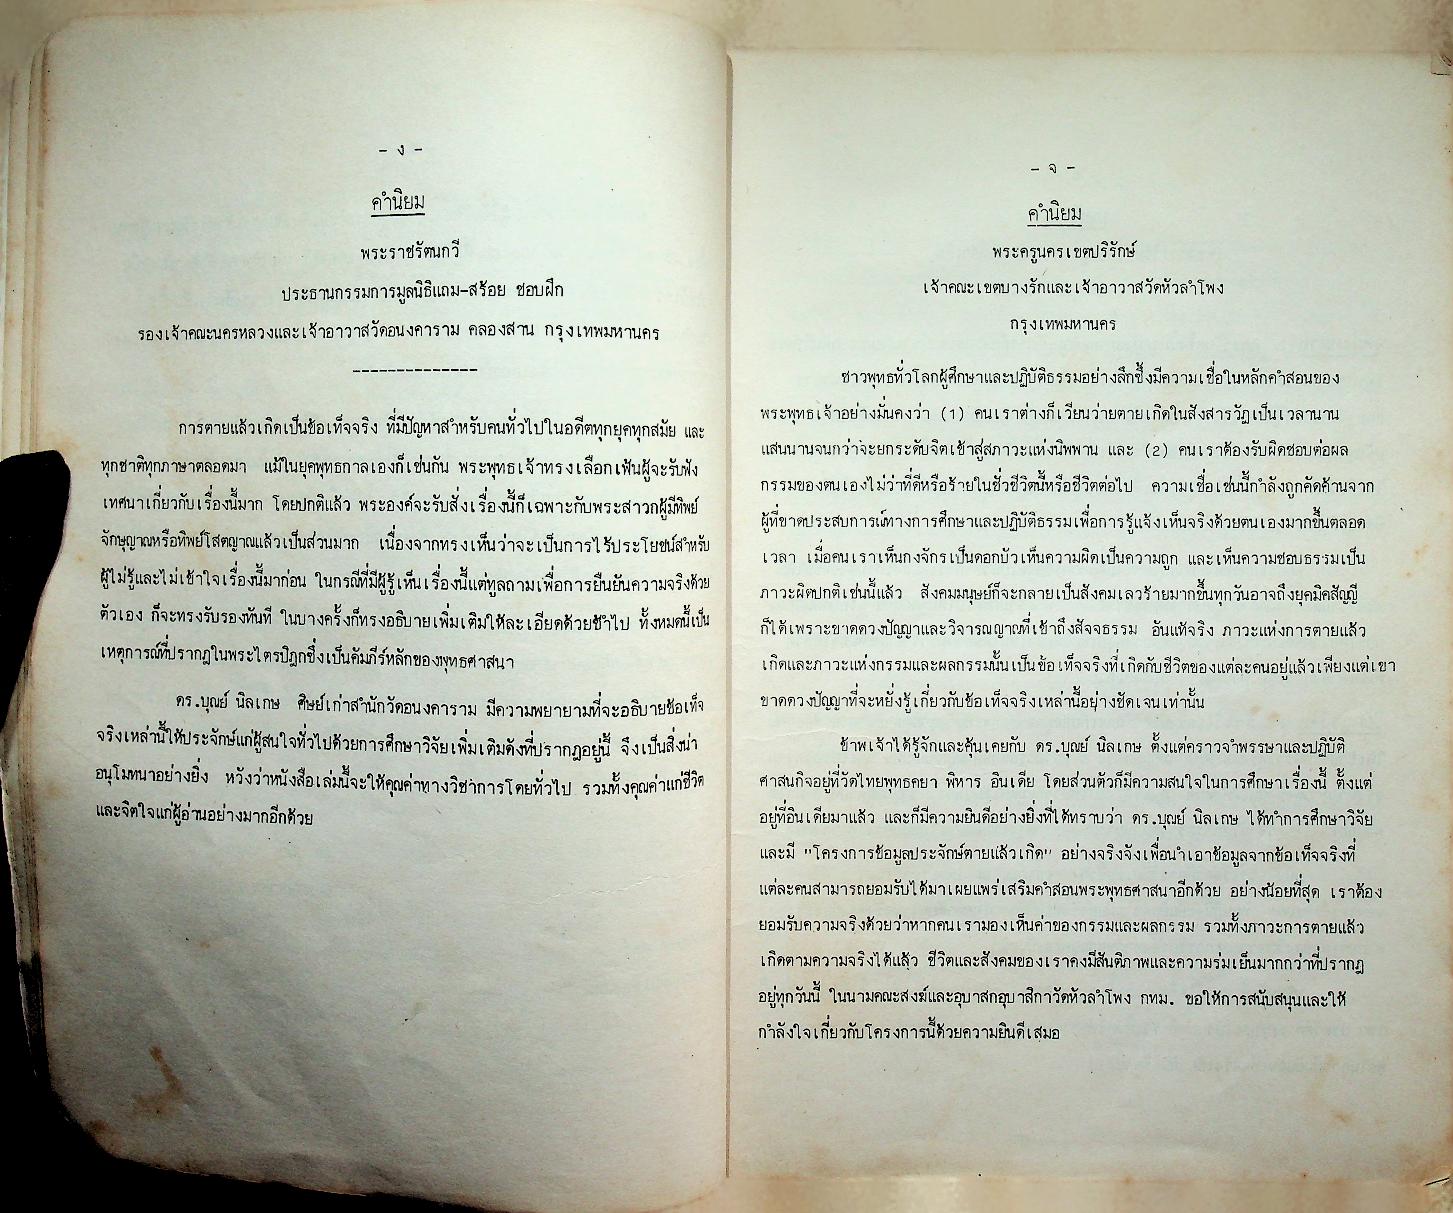 - ง -
คำนิยม
พระราชรัตนกวี
ประธานกรรมการมูลนิธิแถม-สร้อย ชอบฝึก
รองเจ้าคณะนครหลวงและเจ้าอาวาสวัดอนงคาราม คลองสาน กรุงเทพมหานคร
--------------
การตายแล้วเกิดเป็นข้อเท็จจริง ที่มีปัญหาสำหรับคนทั่วไปในอดีตทุกยุคทุกสมัย และ
ทุกชาติทุกภาษาตลอดมา แม้ในยุคพุทธกาลเองก็เช่นกัน พระพุทธเจ้าทรงเลือกเฟ้นผู้จะรับฟัง
เทศนาเกี่ยวกับเรื่องนี้มาก โดยปกติแล้ว พระองค์จะรับสั่งเรื่องนี้ก็เฉพาะกับพระสาวกผู้มีทิพย์
จักษุญาณหรือทิพย์โสตญาณแล้วเป็นส่วนมาก เนื่องจากทรงเห็นว่าจะเป็นการไร้ประโยชน์สำหรับ
ผู้ไม่รู้และไม่เข้าใจเรื่องนี้มาก่อน ในกรณีที่มีผู้รู้เห็นเรื่องนี้แต่ทูลถามเพื่อการยืนยันความจริงด้วย
ตัวเอง ก็จะทรงรับรองทันที ในบางครั้งก็ทรงอธิบายเพิ่มเติมให้ละเอียดด้วยซ้ำไป ทั้งหมดนี้เป็น
เหตุการณ์ที่ปรากฏในพระไตรปิฎกซึ่งเป็นคัมภีร์หลักของพุทธศาสนา
ดร.บุณย์ นิลเกษ ศิษย์เก่าสำนักวัดอนงคาราม มีความพยายามที่จะอธิบายข้อเท็จ
จริงเหล่านี้ให้ประจักษ์แก่ผู้สนใจทั่วไปด้วยการศึกษาวิจัยเพิ่มเติมดังที่ปรากฏอยู่นี้ จึงเป็นสิ่งน่า
อนุโมทนาอย่างยิ่ง หวังว่าหนังสือเล่มนี้จะให้คุณค่าทางวิชาการโดยทั่วไป รวมทั้งคุณค่าแก่ชีวิต
และจิตใจแก่ผู้อ่านอย่างมากอีกด้วย
- จ -
คำนิยม
พระครูนครเขตปริรักษ์
เจ้าคณะเขตบางรักและเจ้าอาวาสวัดหัวลำโพง
กรุงเทพมหานคร
ชาวพุทธทั่วโลกผู้ศึกษาและปฏิบัติธรรมอย่างลึกซึ้งมีความเชื่อในหลักคำสอนของ
พระพุทธเจ้าอย่างมั่นคงว่า (1) คนเราต่างก็เวียนว่ายตายเกิดในสังสารวัฏเป็นเวลานาน
แสนนานจนกว่าจะยกระดับจิตเข้าสู่สภาวะแห่งนิพพาน และ (2) คนเราต้องรับผิดชอบต่อผล
กรรมของตนเองไม่ว่าที่ดีหรือร้ายในชั่วชีวิตนี้หรือชีวิตต่อไป ความเชื่อเช่นนี้กำลังถูกคัดค้านจาก
ผู้ที่ขาดประสบการณ์ทางการศึกษาและปฏิบัติธรรมเพื่อการรู้แจ้งเห็นจริงด้วยตนเองมากขึ้นตลอด
เวลา เมื่อคนเราเห็นกงจักรเป็นดอกบัวเห็นความผิดเป็นความถูก และเห็นความชอบธรรมเป็น
ภาวะผิดปกติเช่นนี้แล้ว สังคมมนุษย์ก็จะกลายเป็นสังคมเลวร้ายมากขึ้นทุกวันอาจถึงยุคมิคสัญญี
ก็ได้เพราะขาดดวงปัญญาและวิจารณญาณที่เข้าถึงสัจจธรรม อันแท้จริง ภาวะแห่งการตายแล้ว
เกิดและภาวะแห่งกรรมและผลกรรมนั้นเป็นข้อเท็จจริงที่เกิดกับชีวิตของแต่ละคนอยู่แล้วเพียงแต่เขา
ขาดดวงปัญญาที่จะหยั่งรู้เกี่ยวกับข้อเท็จจริงเหล่านี้อย่างชัดเจนเท่านั้น
ข้าพเจ้าได้รู้จักและคุ้นเคยกับ ดร.บุณย์ นิลเกษ ตั้งแต่คราวจำพรรษาและปฏิบัติ
ศาสนกิจอยู่ที่วัดไทยพุทธคยา พิหาร อินเดีย โดยส่วนตัวก็มีความสนใจในการศึกษาเรื่องนี้ ตั้งแต่
อยู่ที่อินเดียมาแล้ว และก็มีความยินดีอย่างยิ่งที่ได้ทราบว่า ดร.บุณย์ นิลเกษ ได้ทำการศึกษาวิจัย
และมี "โครงการข้อมูลประจักษ์ตายแล้วเกิด" อย่างจริงจังเพื่อนำเอาข้อมูลจากข้อเท็จจริงที่
แต่ละคนสามารถยอมรับได้มาเผยแพร่เสริมคำสอนพระพุทธศาสนาอีกด้วย อย่างน้อยที่สุด เราต้อง
ยอมรับความจริงด้วยว่าหากคนเรามองเห็นค่าของกรรมและผลกรรม รวมทั้งภาวะการตายแล้ว
เกิดตามความจริงได้แล้ว ชีวิตและสังคมของเราคงมีสันติภาพและความร่มเย็นมากกว่าที่ปรากฏ
อยู่ทุกวันนี้ ในนามคณะสงฆ์และอุบาสกอุบาสิกาวัดหัวลำโพง กทม. ขอให้การสนับสนุนและให้
กำลังใจเกี่ยวกับโครงการนี้ด้วยความยินดีเสมอ